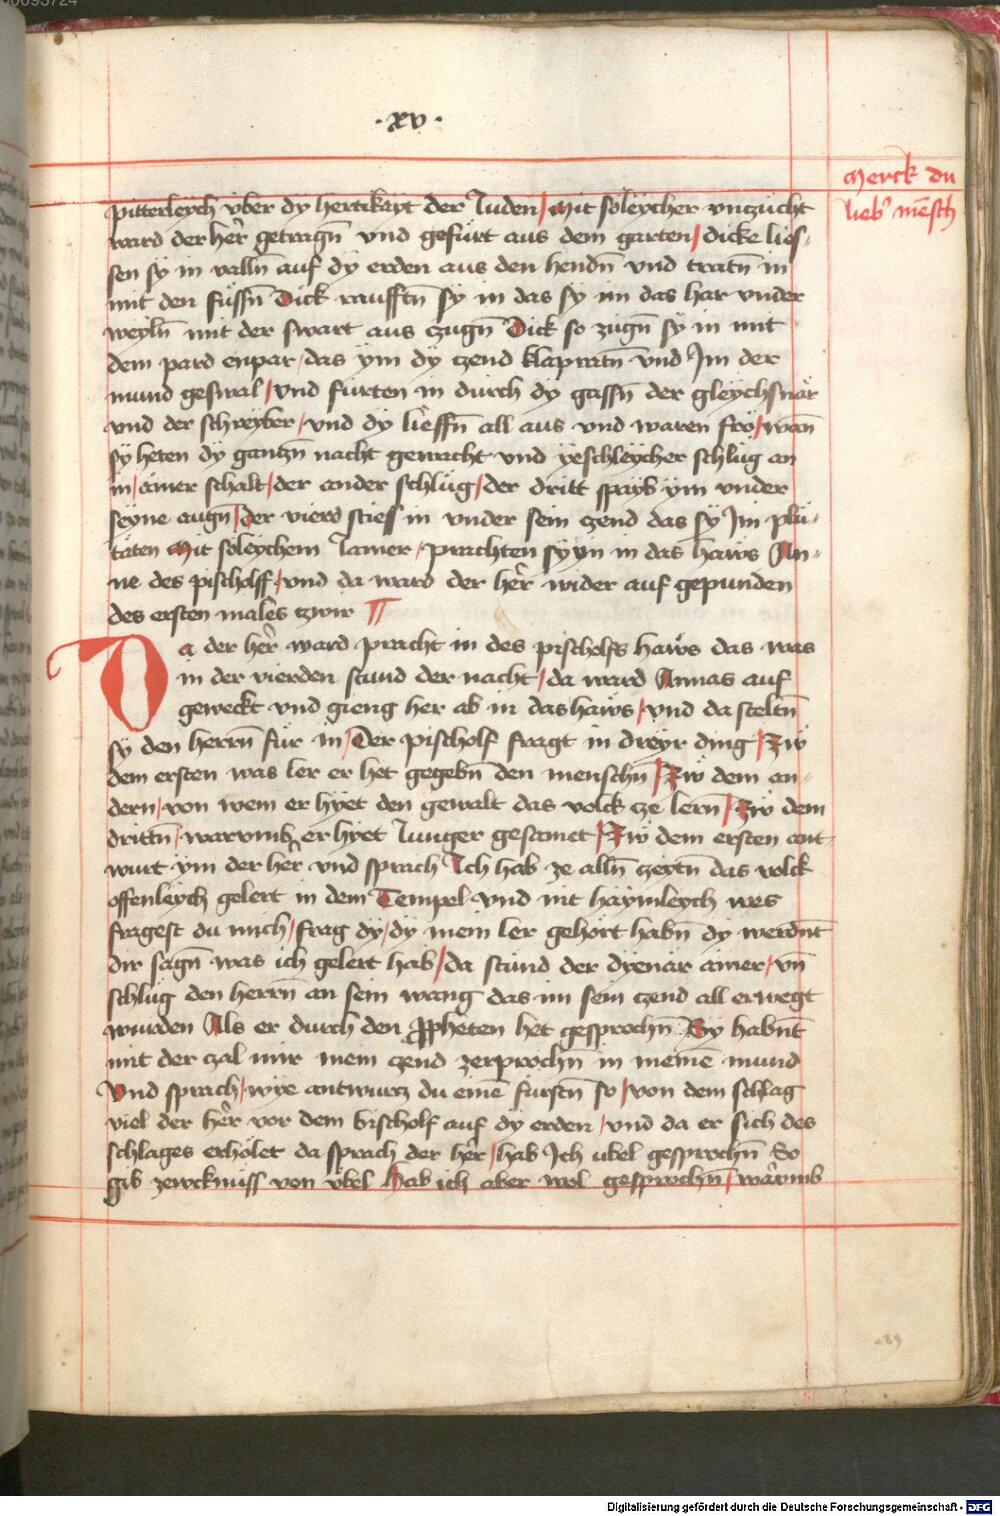 ·xv·
Merck du
lieb' mēsch
pitterleych vber dy hertikayt der Juden / Mit söleycher vnzücht
ward der her̄ getragn̄ vnd gefürt aus dem garten / dicke lies-
sen sy in valln̄ auf dy erden aus den hendn̄ vnd tratn̄ in
mit den füssn̄ Dick raufftn̄ sy in das sy im das har vnder
weyln̄ mit der swart aus czugn̄ Dick so zügn̄ sy in mit
dem pard enpar / das ym dy czend klapratn̄ vnd Im der
mund geswal / vnd fürten in durch dy gassn̄ der gleychsnär
vnd der schreyber / vnd dy lieffn̄ all aus vnd waren frö / wan̄
sy heten dy gantzn̄ nacht gewacht vnd yeschleycher schlüg an
in / ainer schalt / der ander schlüg / der dritt spayb ym vnder
seyne augn̄ / der vierd sties in vnder sein czend das sy Im plü-
täten Mit söleychem Jamer / prachten sy yn in das haws An-
ne des pischolff / vnd da ward der her̄ wider auf gepunden
des ersten males zwir
Da der her̄ ward pracht in des pischolfs haws das was
in der vierden stund der nacht / da ward Annas auf
geweckt vnd gieng her ab in das haws / vnd da steltn̄
sy den herrn̄ für in / Der pischolf fragt in dreyr ding / Zw
dem ersten was ler er het gegebn̄ den menschn̄ / Zw dem an-
dern / von wem er hyet den gewalt das volck cze lern̄ / Zw dem
drittn̄ / warvmb er hyet Junger gesamet / Zw dem ersten ant-
wurt ym der her̄ vnd sprach Ich hab ze alln̄ czeytn̄ das volck
offenleych gelert in dem Tempel vnd nit haymleych wes
fragest du mich / frag dy / dy mein ler gehört habn̄ dy werdn̄t
dir sagn̄ was ich gelert hab / da stünd der dyenär ainer / vn̄
schlüg den herrn̄ an sein wang das im sein czend all erwegt
wurden Als er durch den ꝓpheten het gesprochn̄ Sy habn̄t
mit der czal mir mein czend zerprochn̄ in meinē mund
Vnd sprach / wye antwurcz du einē fürstn̄ so / von dem schlag
viel der her̄ vor dem bischolf auf dy erden / vnd da er sich des
schlages erhölet da sprach der her̄ / hab Ich vbel gesprochn̄ So
gib zewcknüss von vbel Hab ich aber wol gesprochn̄ / warvmb